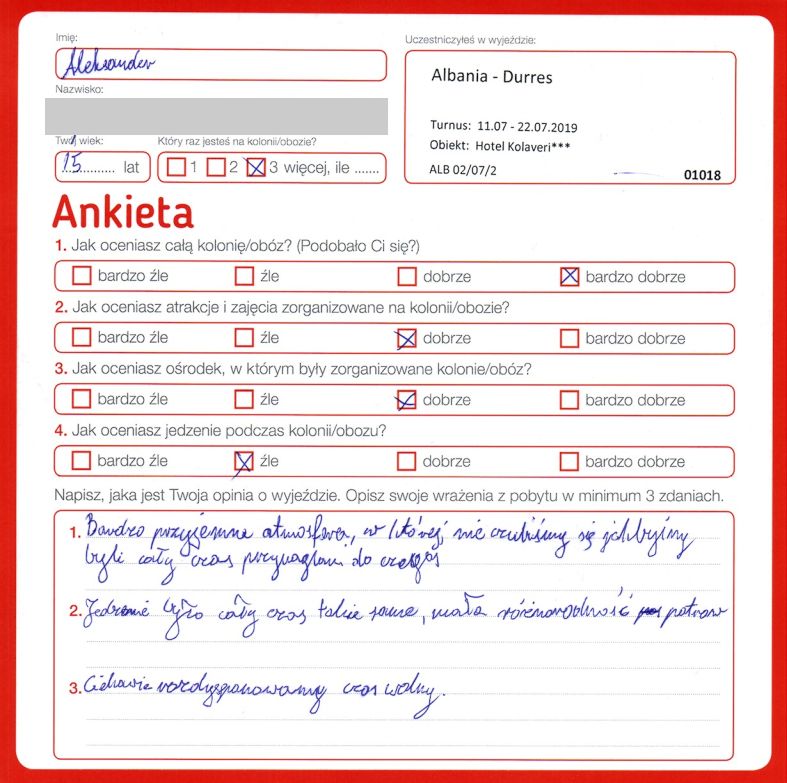 Imię:
Aleksander
Uczestniczyłeś w wyjeździe:
Albania - Durres
Nazwisko:
Turnus: 11.07 - 22.07.2019
Obiekt: Hotel Kolaveri***
ALB 02/07/2
01018
Twój wiek:
15 lat
Który raz jesteś na kolonii/obozie?
1 2 3 więcej, ile .......
Ankieta
1. Jak oceniasz całą kolonię/obóz? (Podobało Ci się?)
bardzo źle źle dobrze bardzo dobrze
2. Jak oceniasz atrakcje i zajęcia zorganizowane na kolonii/obozie?
bardzo źle źle dobrze bardzo dobrze
3. Jak oceniasz ośrodek, w którym były zorganizowane kolonie/obóz?
bardzo źle źle dobrze bardzo dobrze
4. Jak oceniasz jedzenie podczas kolonii/obozu?
bardzo źle źle dobrze bardzo dobrze
Napisz, jaka jest Twoja opinia o wyjeździe. Opisz swoje wrażenia z pobytu w minimum 3 zdaniach.
1. Bardzo przyjemna atmosfera, w której nie czuliśmy się jakbyśmy
byli cały czas przynaglani do czegoś
2. Jedzenie było cały czas takie same, mała różnorodność potraw
3. Ciekawie rozdysponowany czas wolny.